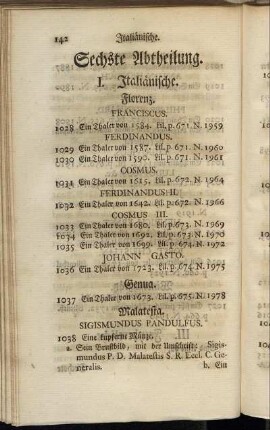 142 Italiänische.
Sechste Abtheilung.
I. Italiänische.
Florenz.
FRANCISCUS.
1028 Ein Thaler von 1584. Lil. p. 671. N. 1959
FERDINANDUS.
1029 Ein Thaler von 1587. Lil. p. 671. N. 1960
1030 Ein Thaler von 1590. Lil. p. 671. N. 1961
COSMUS.
1031 Ein Thaler von 1615. Lil. p. 672. N. 1964
FERDINANDUS II.
1032 Ein Thaler von 1642. Lil. p. 672. N. 1966
COSMUS III.
1033 Ein Thaler von 1680. Lil. p. 673. N. 1969
1034 Ein Thaler von 1692. Lil. p. 673. N. 1970
1035 Ein Thaler von 1699. Lil. p. 674. N. 1972
JOHANN GASTO.
1036 Ein Thaler von 1723. Lil. p. 674. N. 1975
Genua.
1037 Ein Thaler von 1673. Lil. p. 675. N. 1978
Malatesta.
SIGISMUNDUS PANDULFUS.
1038 Eine kupferne Münze.
a. Sein Brustbild, mit der Umschrift: Sigis-
mundus P. D. Malatestis S. R. Eccl. C. Ge-
neralis.
b. Ein